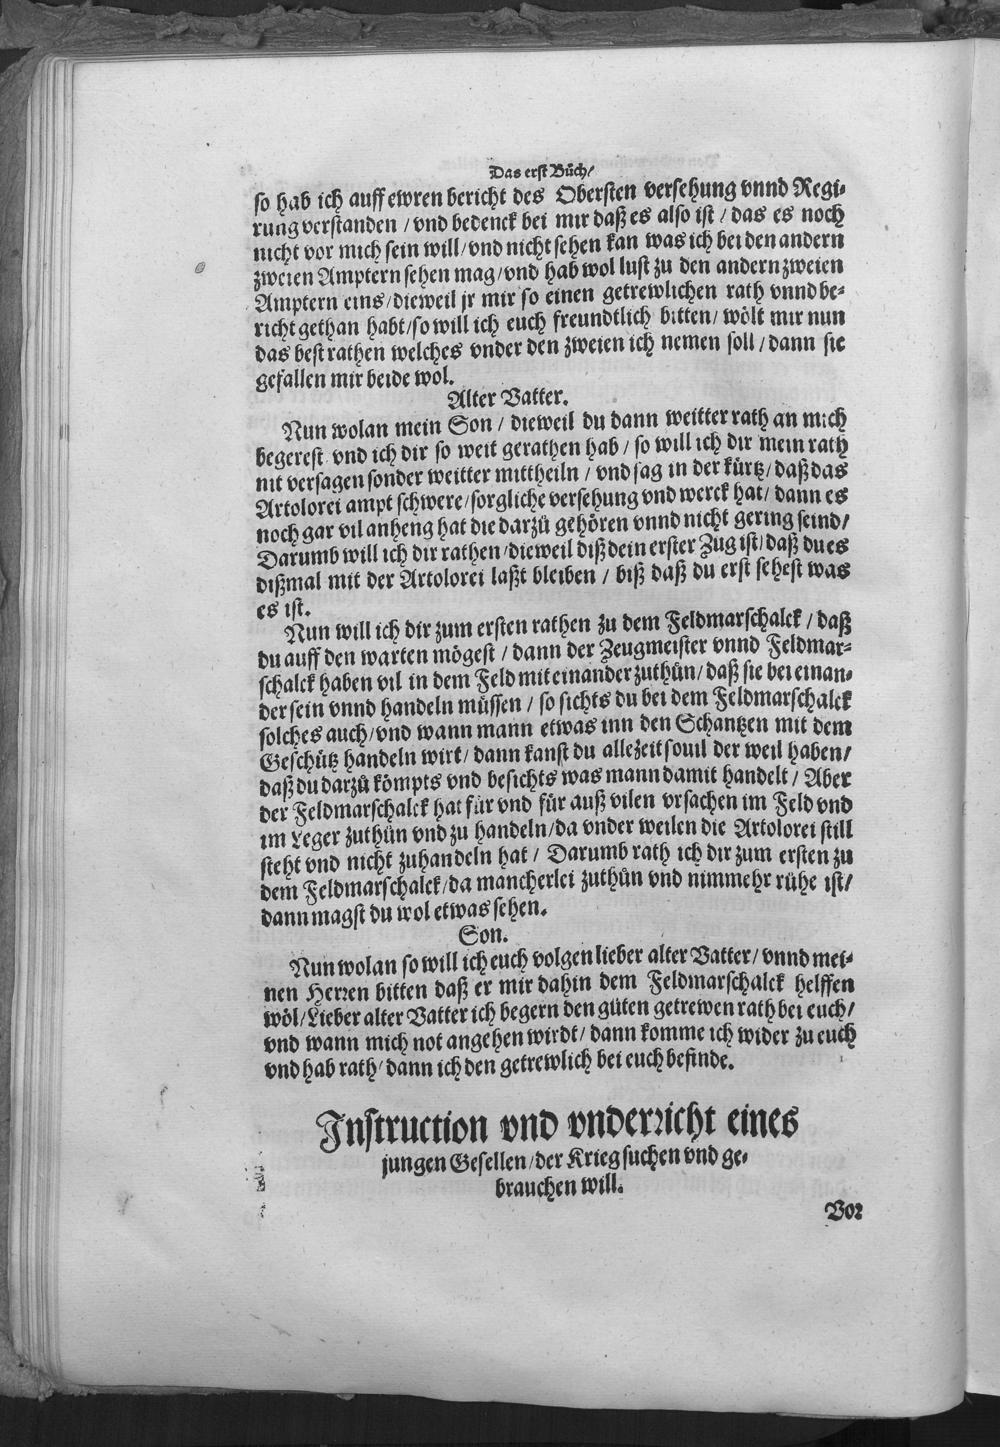 Das erst Bůch/
so hab ich auff ewren bericht des Obersten versehung vnnd Regi⸗
rung verstanden / vnd bedenck bei mir daß es also ist / das es noch
nicht vor mich sein will/ vnd nicht sehen kan was ich bei den andern
zweien Amptern sehen mag/ vnd hab wol lust zu den andern zweien
Amptern eins/ dieweil jr mir so einen getrewlichen rath vnnd be⸗
richt gethan habt/ so will ich euch freundtlich bitten/ wölt mir nun
das best rathen welches vnder den zweien ich nemen soll / dann sie
gefallen mir beide wol.
Alter Vatter.
Nun wolan mein Son / dieweil du dann weitter rath an mich
begerest vnd ich dir so weit gerathen hab / so will ich dir mein rath
nit versagen sonder weitter mittheiln / vnd sag in der kürtz/ daß das
Artolorei ampt schwere/ sorgliche versehung vnd werck hat/ dann es
noch gar vil anheng hat die darzů gehören vnnd nicht gering seind/
Darumb will ich dir rathen/ dieweil diß dein erster Zug ist/ daß du es
dißmal mit der Artolorei laßt bleiben / biß daß du erst sehest was
es ist.
Nun will ich dir zum ersten rathen zu dem Feldmarschalck / daß
du auff den warten mögest / dann der Zeugmeister vnnd Feldmar⸗
schalck haben vil in dem Feld mit einander zuthůn/ daß sie bei einan⸗
der sein vnnd handeln müssen / so sichts du bei dem Feldmarschalck
solches auch/ vnd wann mann etwas inn den Schantzen mit dem
Geschütz handeln wirt/ dann kanst du allezeit souil der weil haben/
daß du darzů kömpts vnd besichts was mann damit handelt / Aber
der Feldmarschalck hat für vnd für auß vilen vrsachen im Feld vnd
im Leger zuthůn vnd zu handeln/ da vnder weilen die Artolorei still
steht vnd nicht zuhandeln hat / Darumb rath ich dir zum ersten zu
dem Feldmarschalck/ da mancherlei zuthůn vnd nimmehr růhe ist/
dann magst du wol etwas sehen.
Son.
Nun wolan so will ich euch volgen lieber alter Vatter/ vnnd mei⸗
nen Herren bitten daß er mir dahin dem Feldmarschalck helffen
wöl/ Lieber alter Vatter ich begern den gůten getrewen rath bei euch/
vnd wann mich not angehen wirdt/ dann komme ich wider zu euch
vnd hab rath/ dann ich den getrewlich bei euch befinde.
Instruction vnd vnderricht eines
jungen Gesellen/ der Krieg suchen vnd ge⸗
brauchen will.
Vor